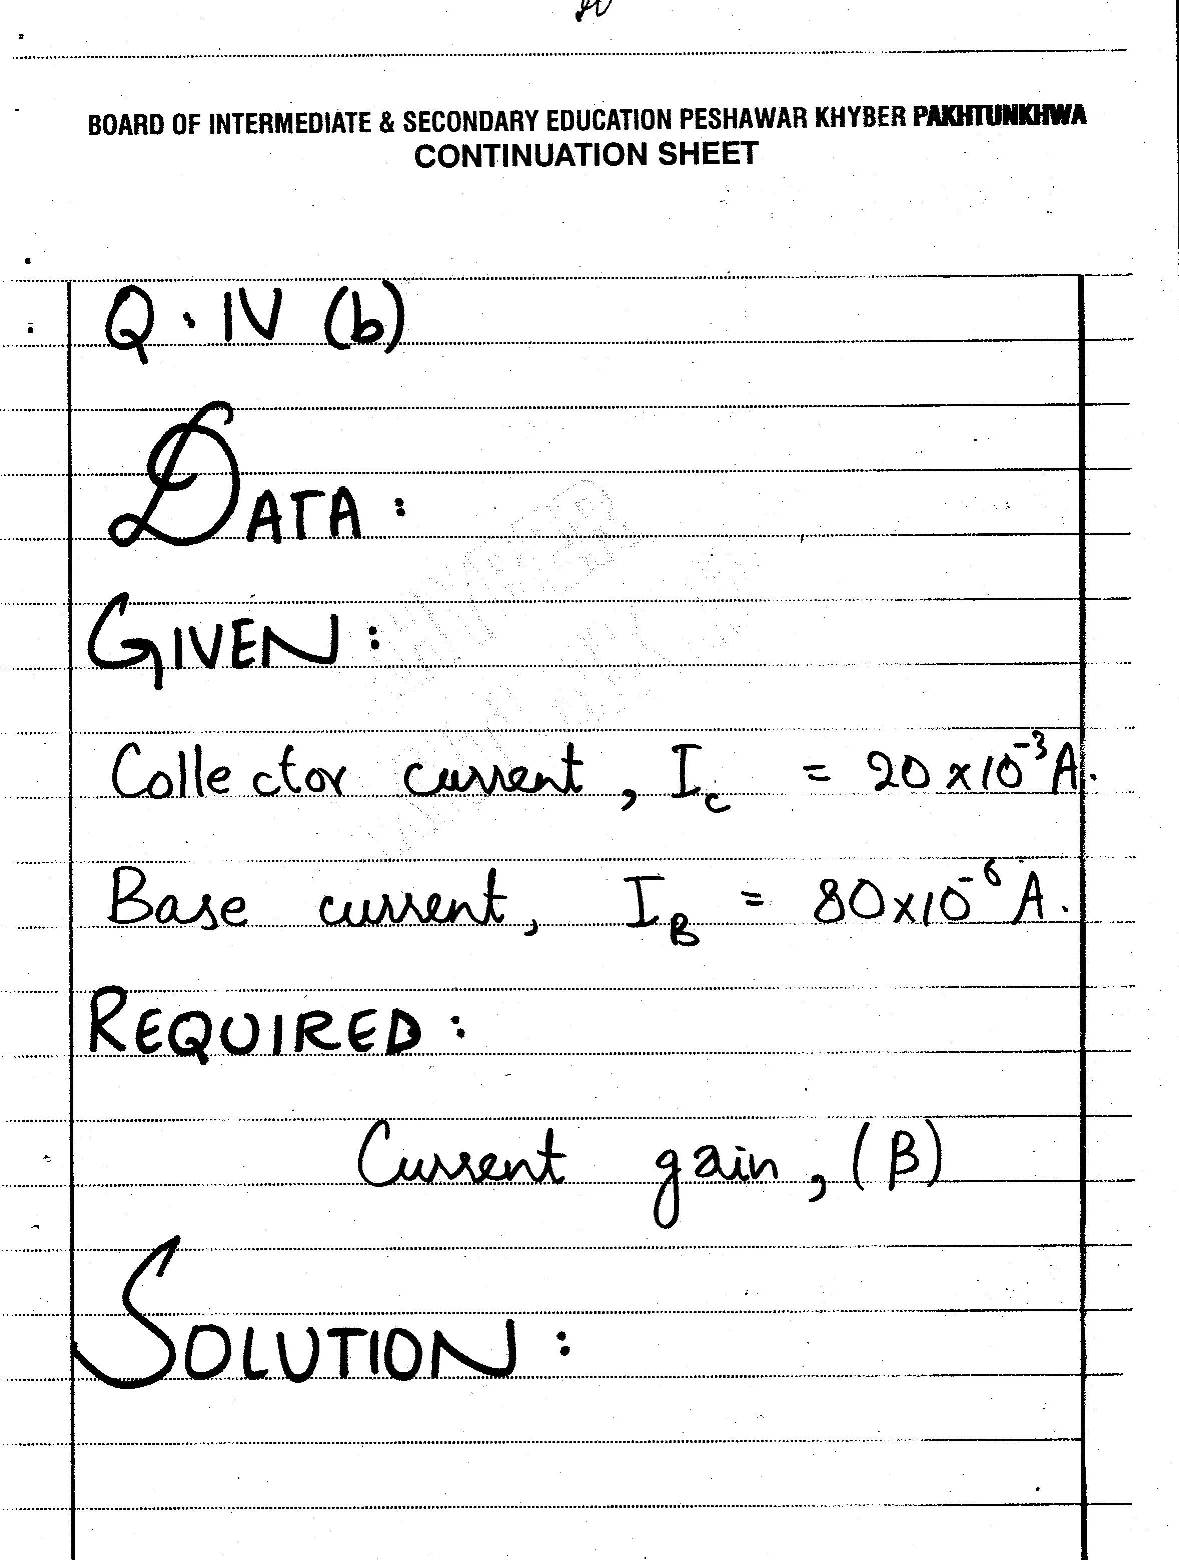 BOARD OF INTERMEDIATE & SECONDARY EDUCATION PESHAWAR KHYBER PAKHTUNKHWA
CONTINUATION SHEET
Q. IV (b)
DATA:
GIVEN:
Collector current, I_c = 20 x 10⁻³ A.
Base current, I_B = 80 x 10⁻⁶ A.
REQUIRED:
Current gain, (β)
SOLUTION: